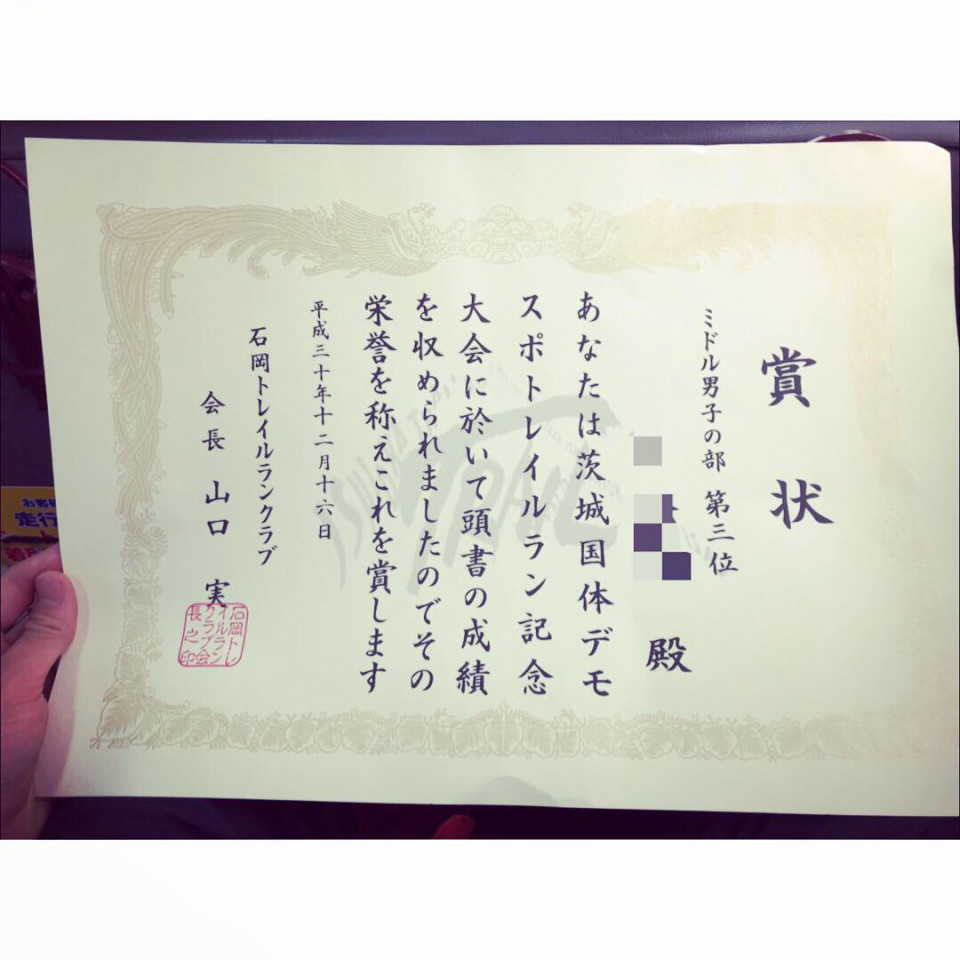 賞状
ミドル男子の部 第三位
殿
あなたは茨城国体デモ
スポトレイルラン記念
大会に於いて頭書の成績
を収められましたのでその
栄誉を称えこれを賞します
平成三十年十二月十六日
石岡トレイルランクラブ
会長 山口 実
石岡トレ
イルラン
クラブ会
長之印
お客様
走行